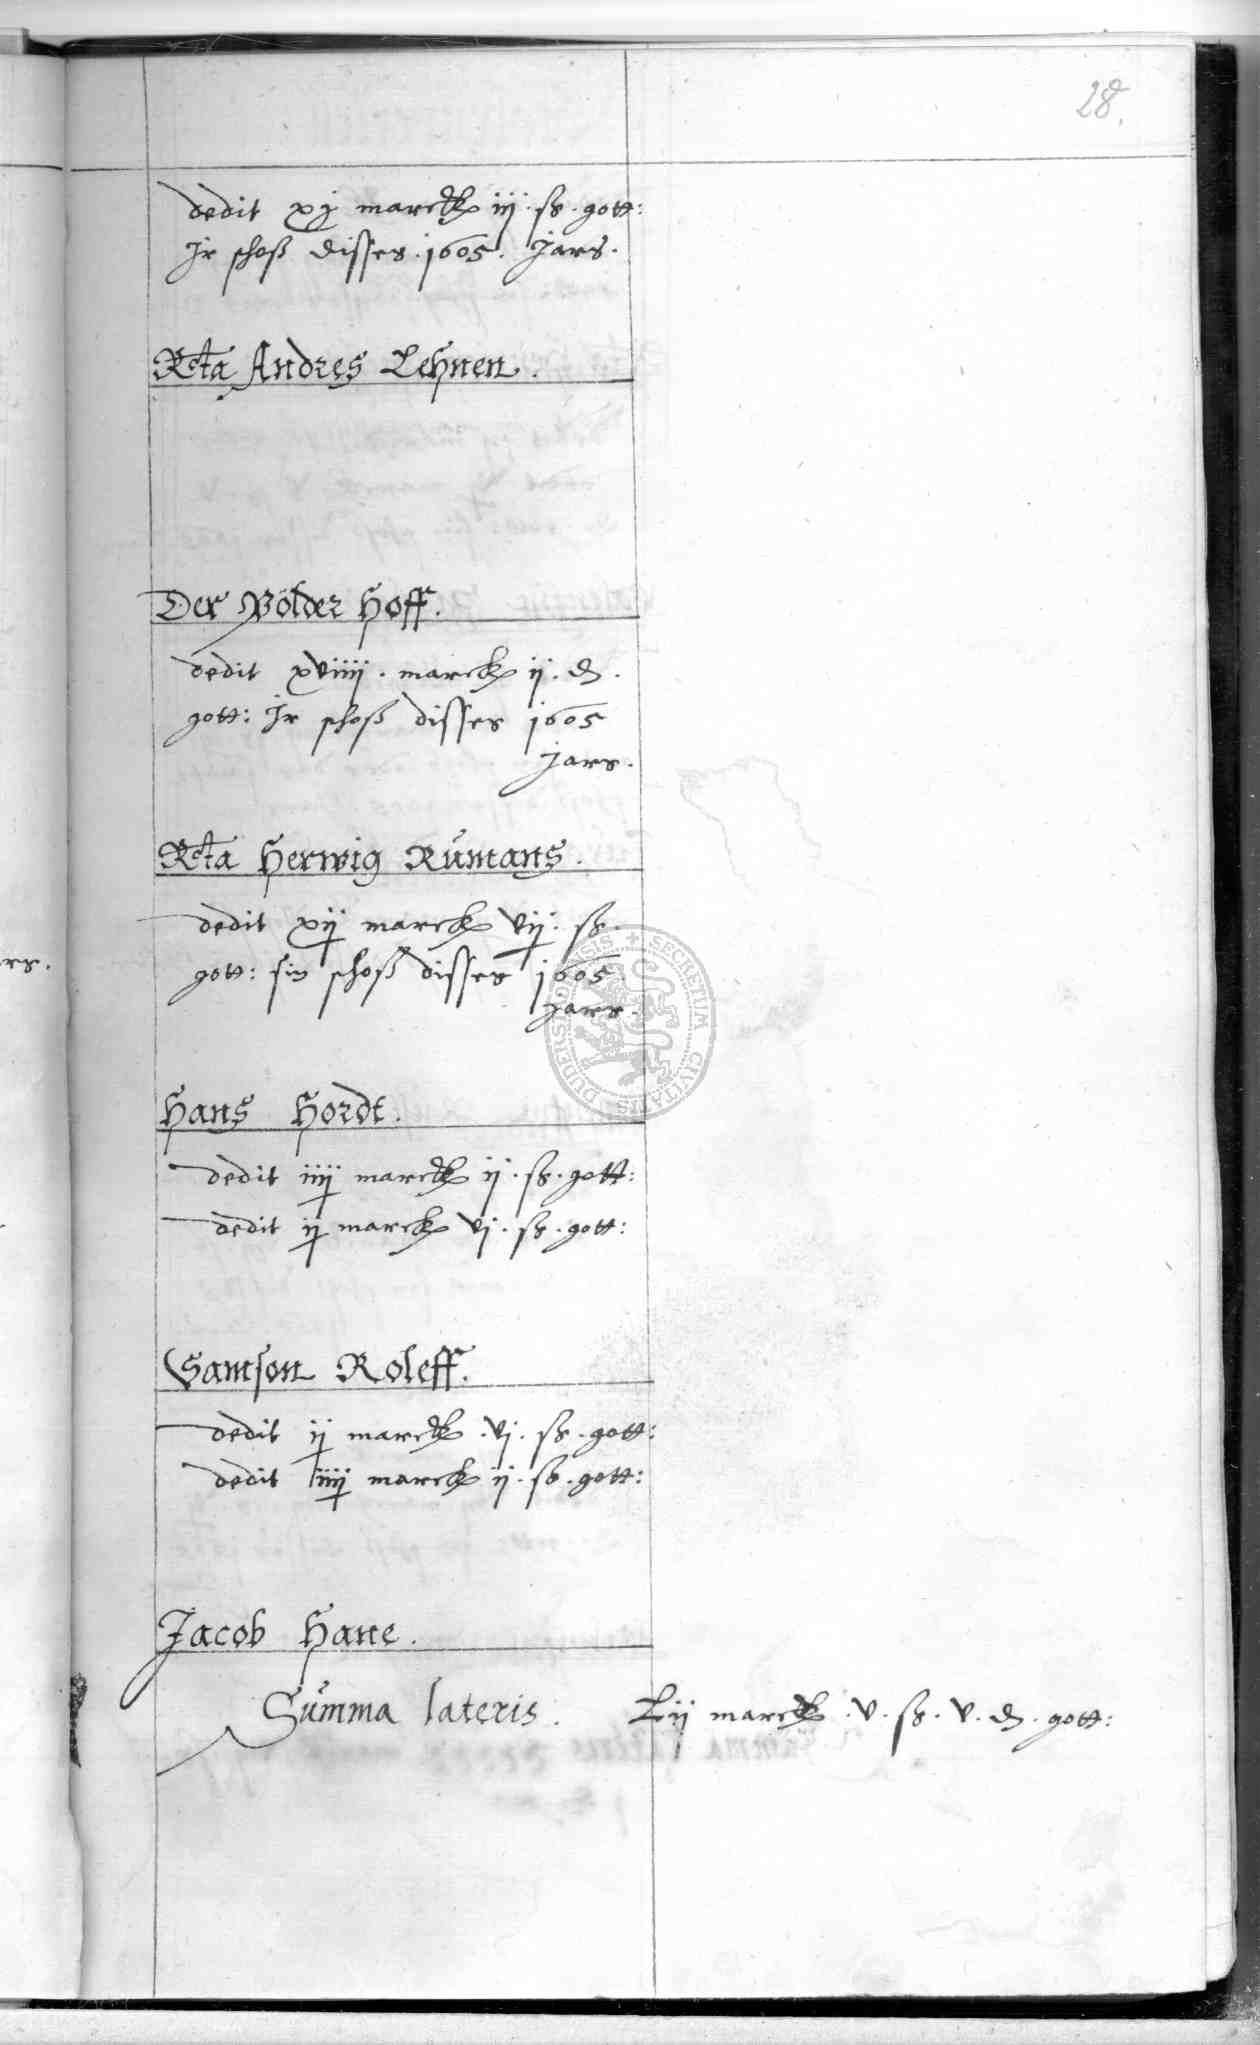 28.
dedit xj marck iij. ss. gott:
Jr schoß disses .1605. Jars.
Rcta Andres Lehnen.
Der Pölder Hoff.
dedit xviiij. marck ij. d.
gott: Jr schoß disses 1605
Jars.
Rcta Herwig Rümans.
dedit xij marck vij. ss.
gott: sin schoß disses 1605
Jars.
Hans Hordt.
dedit iiij marck ij. ss. gott:
dedit ij marck vj. ss. gott:
Samson Roleff.
dedit ij marck .vj. ss. gott:
dedit iiij marck ij. ss. gott:
Jacob Hane.
Summa lateris. Lij marck .v. ss. v. d. gott:
SECRETUM CIVITATIS DUDERSTADENSIS